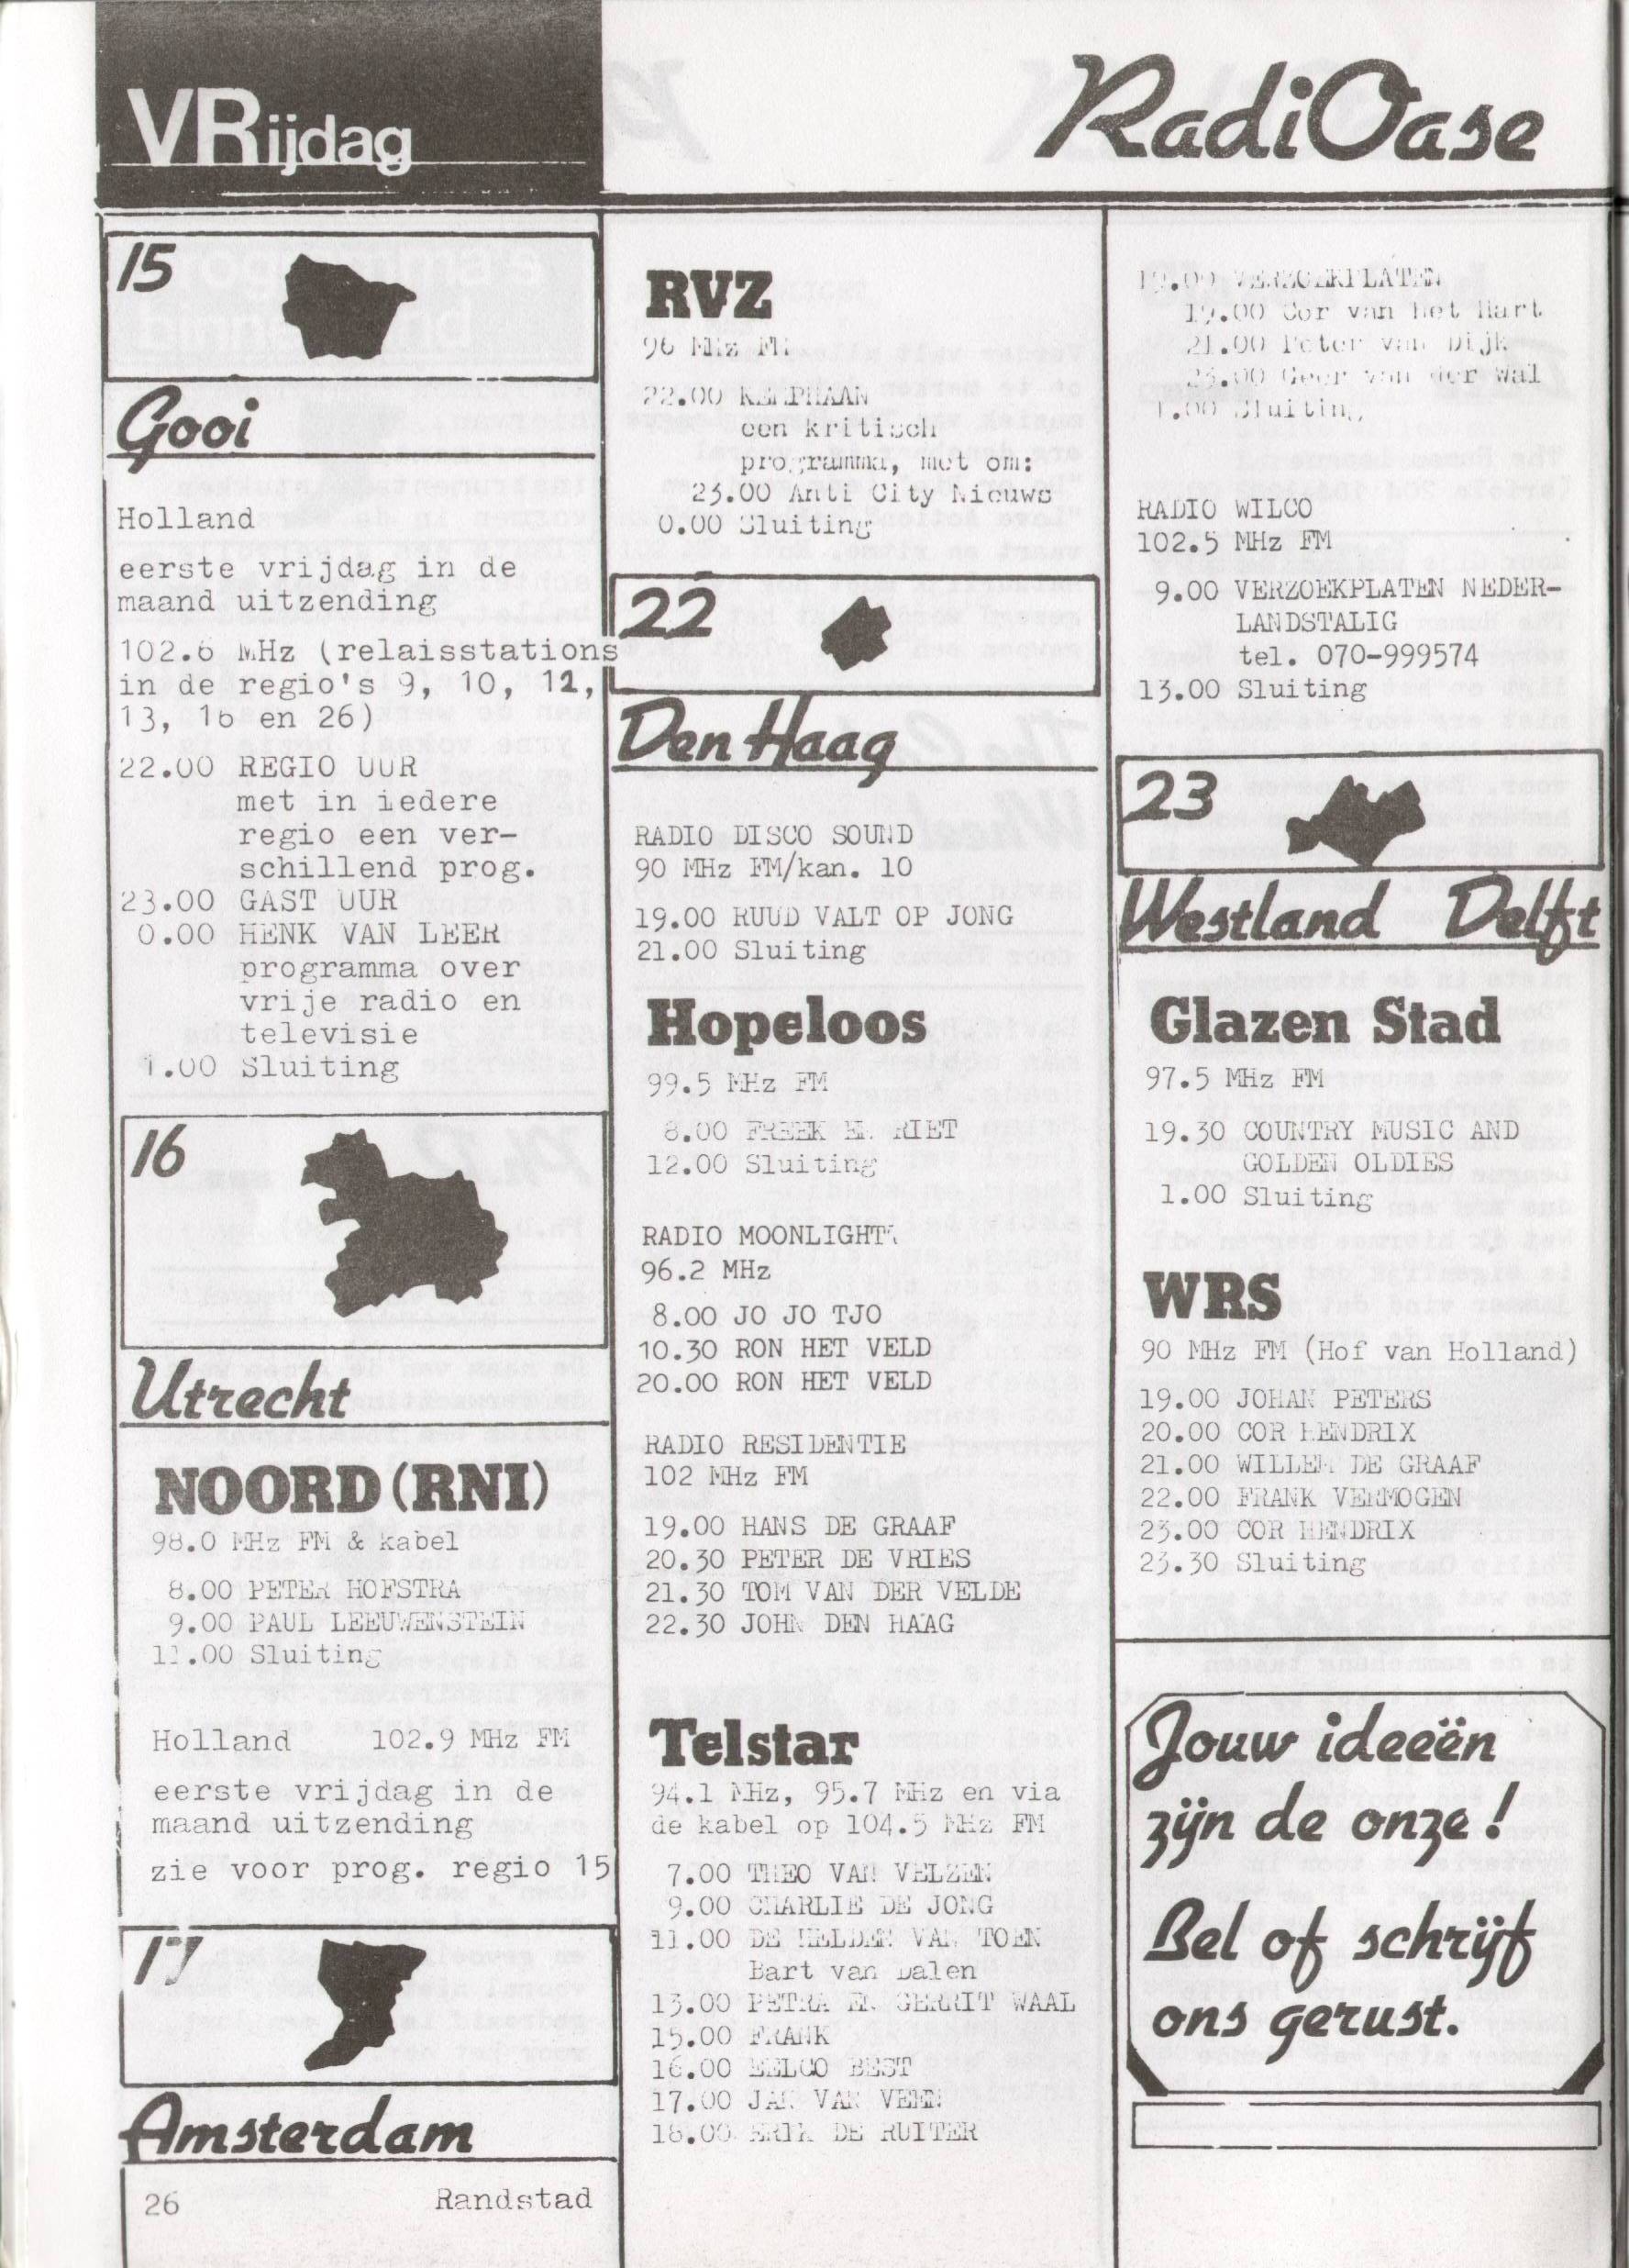 VRijdag
RadiOase
15
Gooi
Holland
eerste vrijdag in de
maand uitzending
102.6 MHz (relaisstations
in de regio's 9, 10, 12,
13, 16 en 26)
22.00 REGIO UUR
met in iedere
regio een ver-
schillend prog.
23.00 GAST UUR
0.00 HENK VAN LEER
programma over
vrije radio en
televisie
1.00 Sluiting
16
Utrecht
NOORD (RNI)
98.0 MHz FM & kabel
8.00 PETER HOFSTRA
9.00 PAUL LEEUWENSTEIN
11.00 Sluiting
Holland 102.9 MHz FM
eerste vrijdag in de
maand uitzending
zie voor prog. regio 15
17
Amsterdam
26 Randstad
RVZ
96 MHz FM
22.00 KEMPHAAN
een kritisch
programma, met om:
23.00 Anti City Nieuws
0.00 Sluiting
22
Den Haag
RADIO DISCO SOUND
90 MHz FM/kan. 10
19.00 RUUD VALT OP JONG
21.00 Sluiting
Hopeloos
99.5 MHz FM
8.00 FREEK EN RIET
12.00 Sluiting
RADIO MOONLIGHT
96.2 MHz
8.00 JO JO TJO
10.30 RON HET VELD
20.00 RON HET VELD
RADIO RESIDENTIE
102 MHz FM
19.00 HANS DE GRAAF
20.30 PETER DE VRIES
21.30 TOM VAN DER VELDE
22.30 JOHN DEN HAAG
Telstar
94.1 MHz, 95.7 MHz en via
de kabel op 104.5 MHz FM
7.00 THEO VAN VELZEN
9.00 CHARLIE DE JONG
11.00 DE HELDEN VAN TOEN
Bart van Dalen
13.00 PETRA EN GERRIT WAAL
15.00 FRANK
16.00 EELCO BEST
17.00 JAN VAN VEEN
18.00 ERIK DE RUITER
19.00 VERZOEKPLATEN
19.00 Cor van het Hart
21.00 Peter van Dijk
23.00 Geer van der Wal
1.00 Sluiting
RADIO WILCO
102.5 MHz FM
9.00 VERZOEKPLATEN NEDER-
LANDSTALIG
tel. 070-999574
13.00 Sluiting
23
Westland Delft
Glazen Stad
97.5 MHz FM
19.30 COUNTRY MUSIC AND
GOLDEN OLDIES
1.00 Sluiting
WRS
90 MHz FM (Hof van Holland)
19.00 JOHAN PETERS
20.00 COR HENDRIX
21.00 WILLEM DE GRAAF
22.00 FRANK VERMOGEN
23.00 COR HENDRIX
23.30 Sluiting
Jouw ideeën
zijn de onze!
Bel of schrijf
ons gerust.